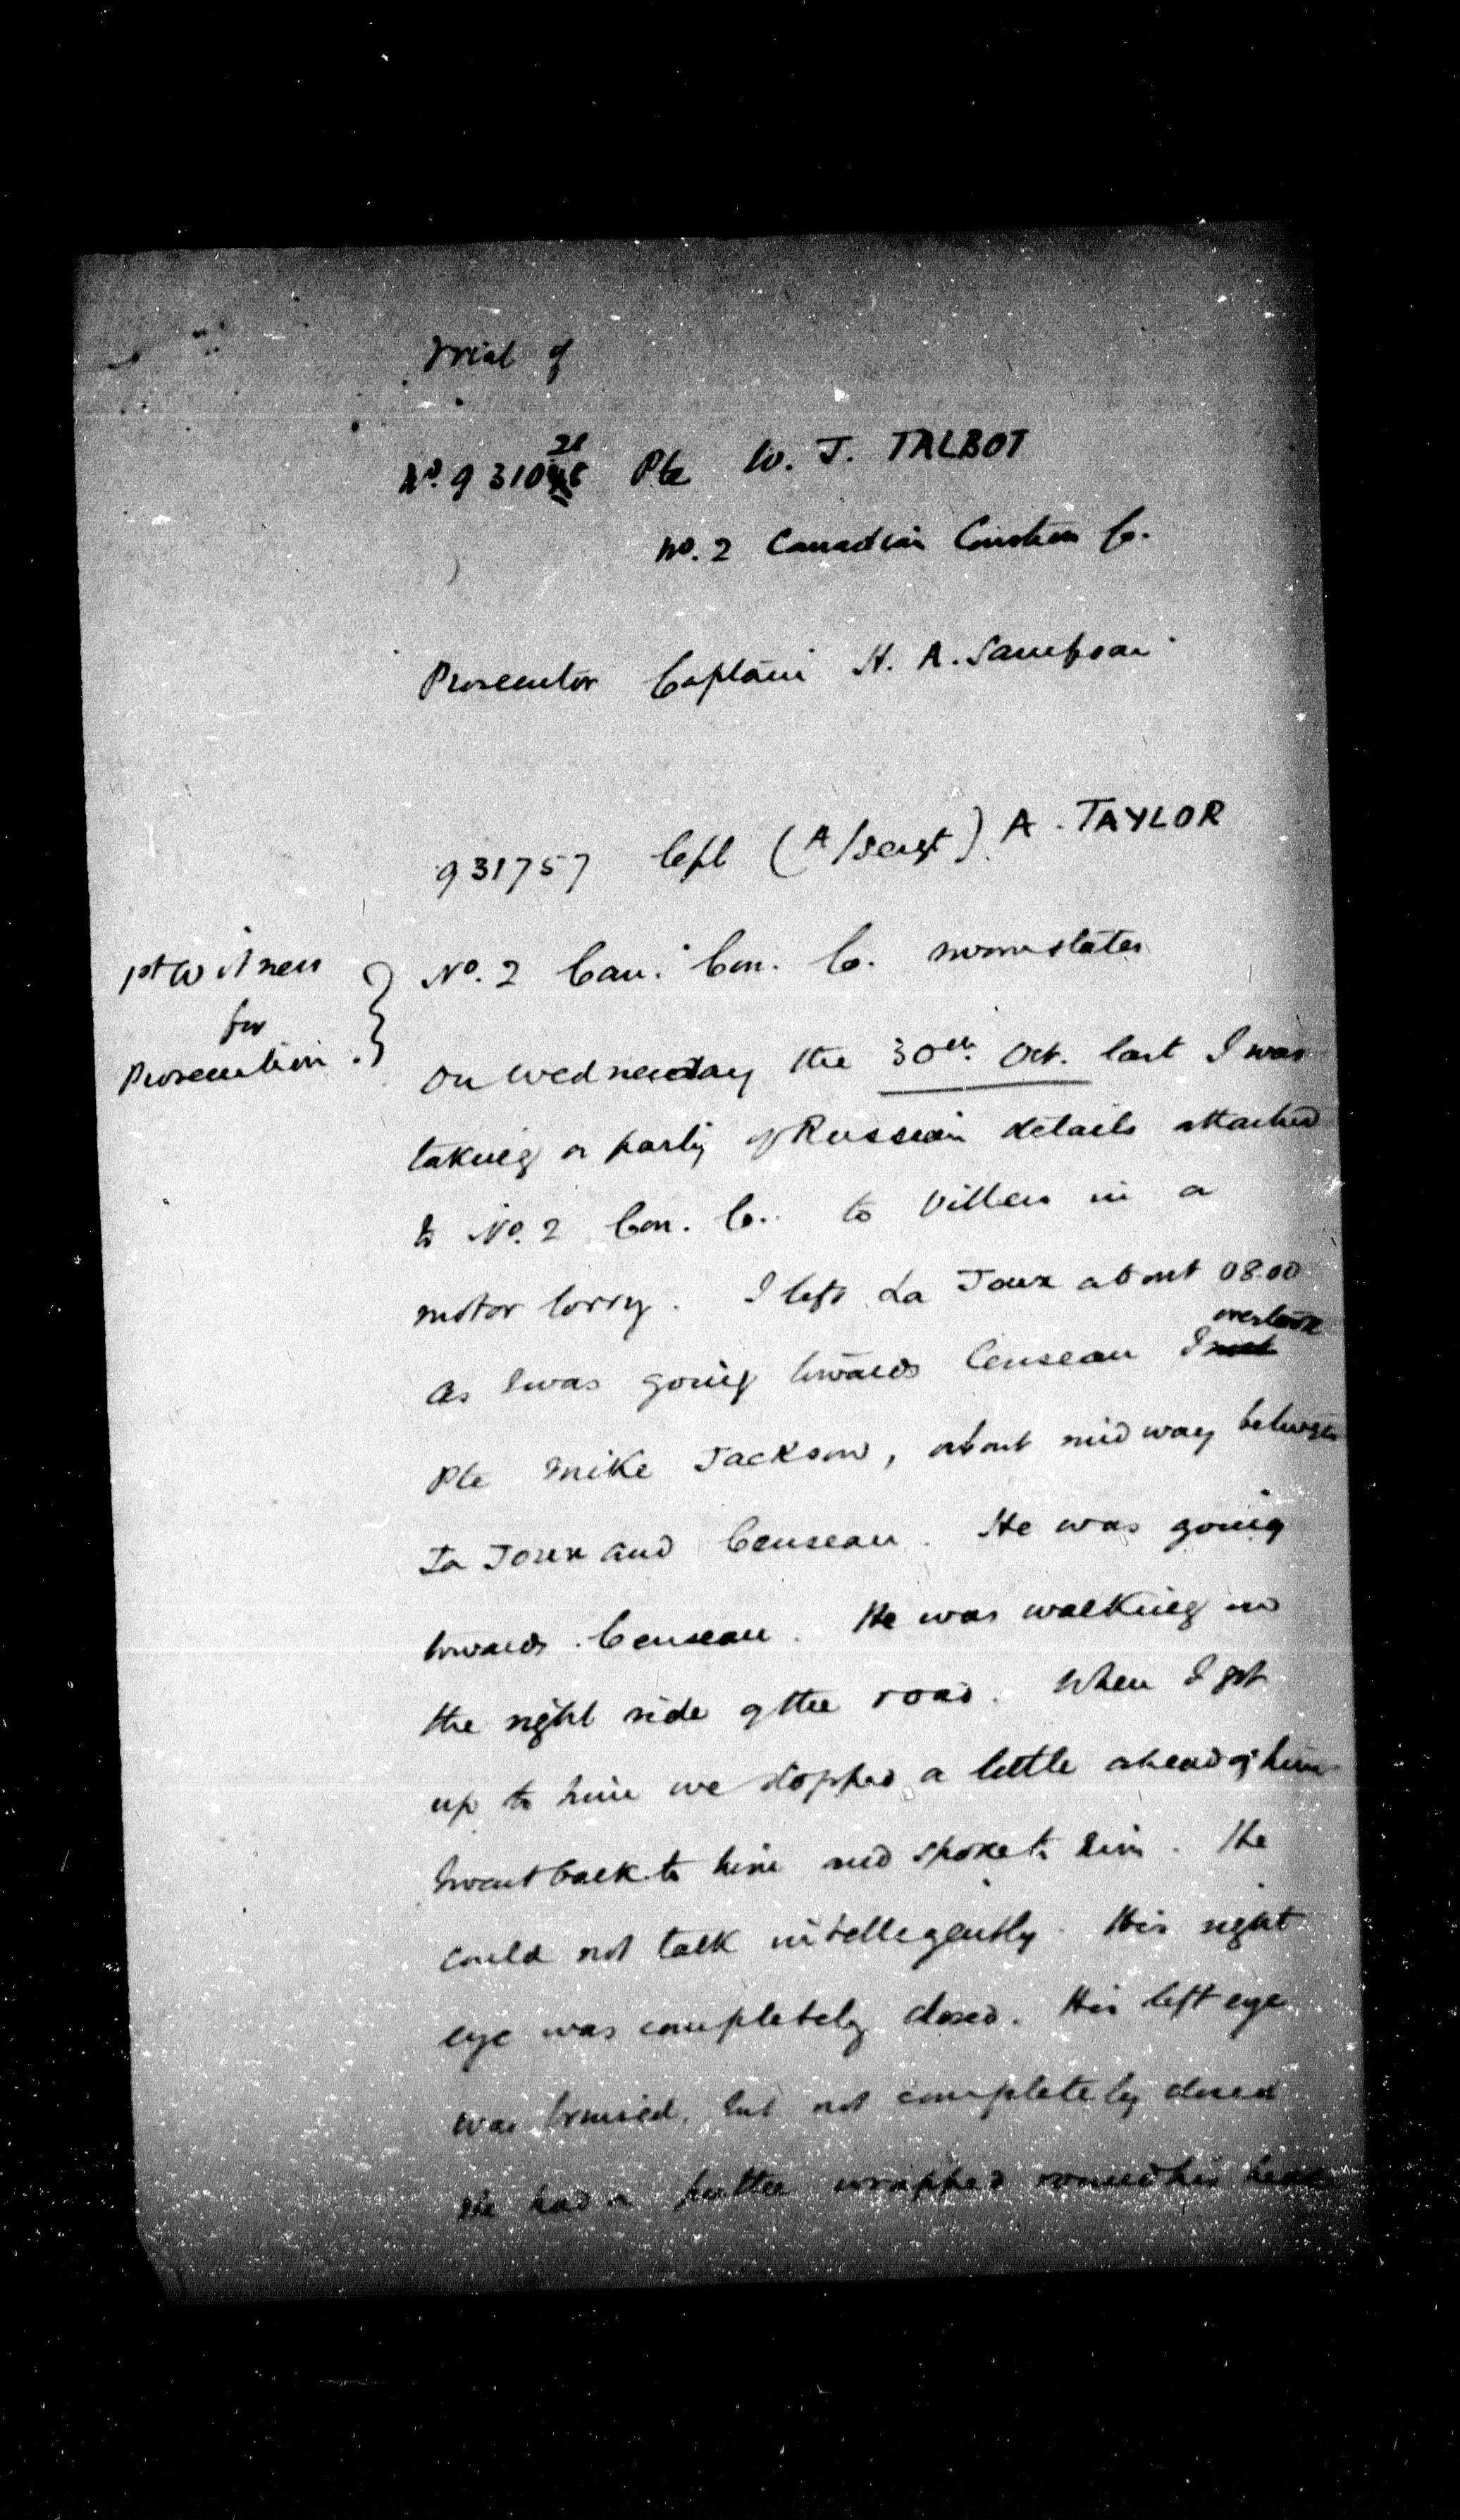 Trial of
No. 931028 Pte W. J. TALBOT
No. 2 Canadian Constrn Co.
Prosecutor Captain H. A. Sampson
931757 Cpl (A/Sergt) A. TAYLOR
1st Witness
for
Prosecution.
No. 2 Can. Con. Co. sworn states
On Wednesday the 30th. Oct. last I was
taking a party of Russian details attached
to No. 2 Con. Co. to Villers in a
motor lorry. I left La Joux about 08.00
As I was going towards Censeau I overtook
Pte Mike Jackson, about midway between
La Joux and Censeau. He was going
towards Censeau. He was walking on
the right side of the road. When I got
up to him we stopped a little ahead of him
I went back to him and spoke to him. He
could not talk intellegently. His right
eye was completely closed. His left eye
was bruised, but not completely closed
He had a puttee wrapped round his head